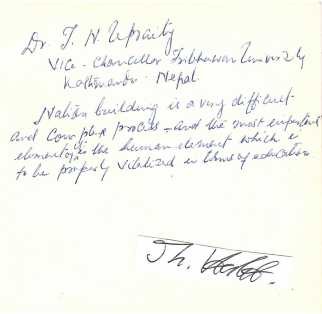 Dr. T. N. Upraity
Vice - Chancellor Tribhuwan University
Kathmandu - Nepal.
Nation building is a very difficult
and complex process - and the most important
element is the human element which is
to be properly vitalized in terms of education
Th.